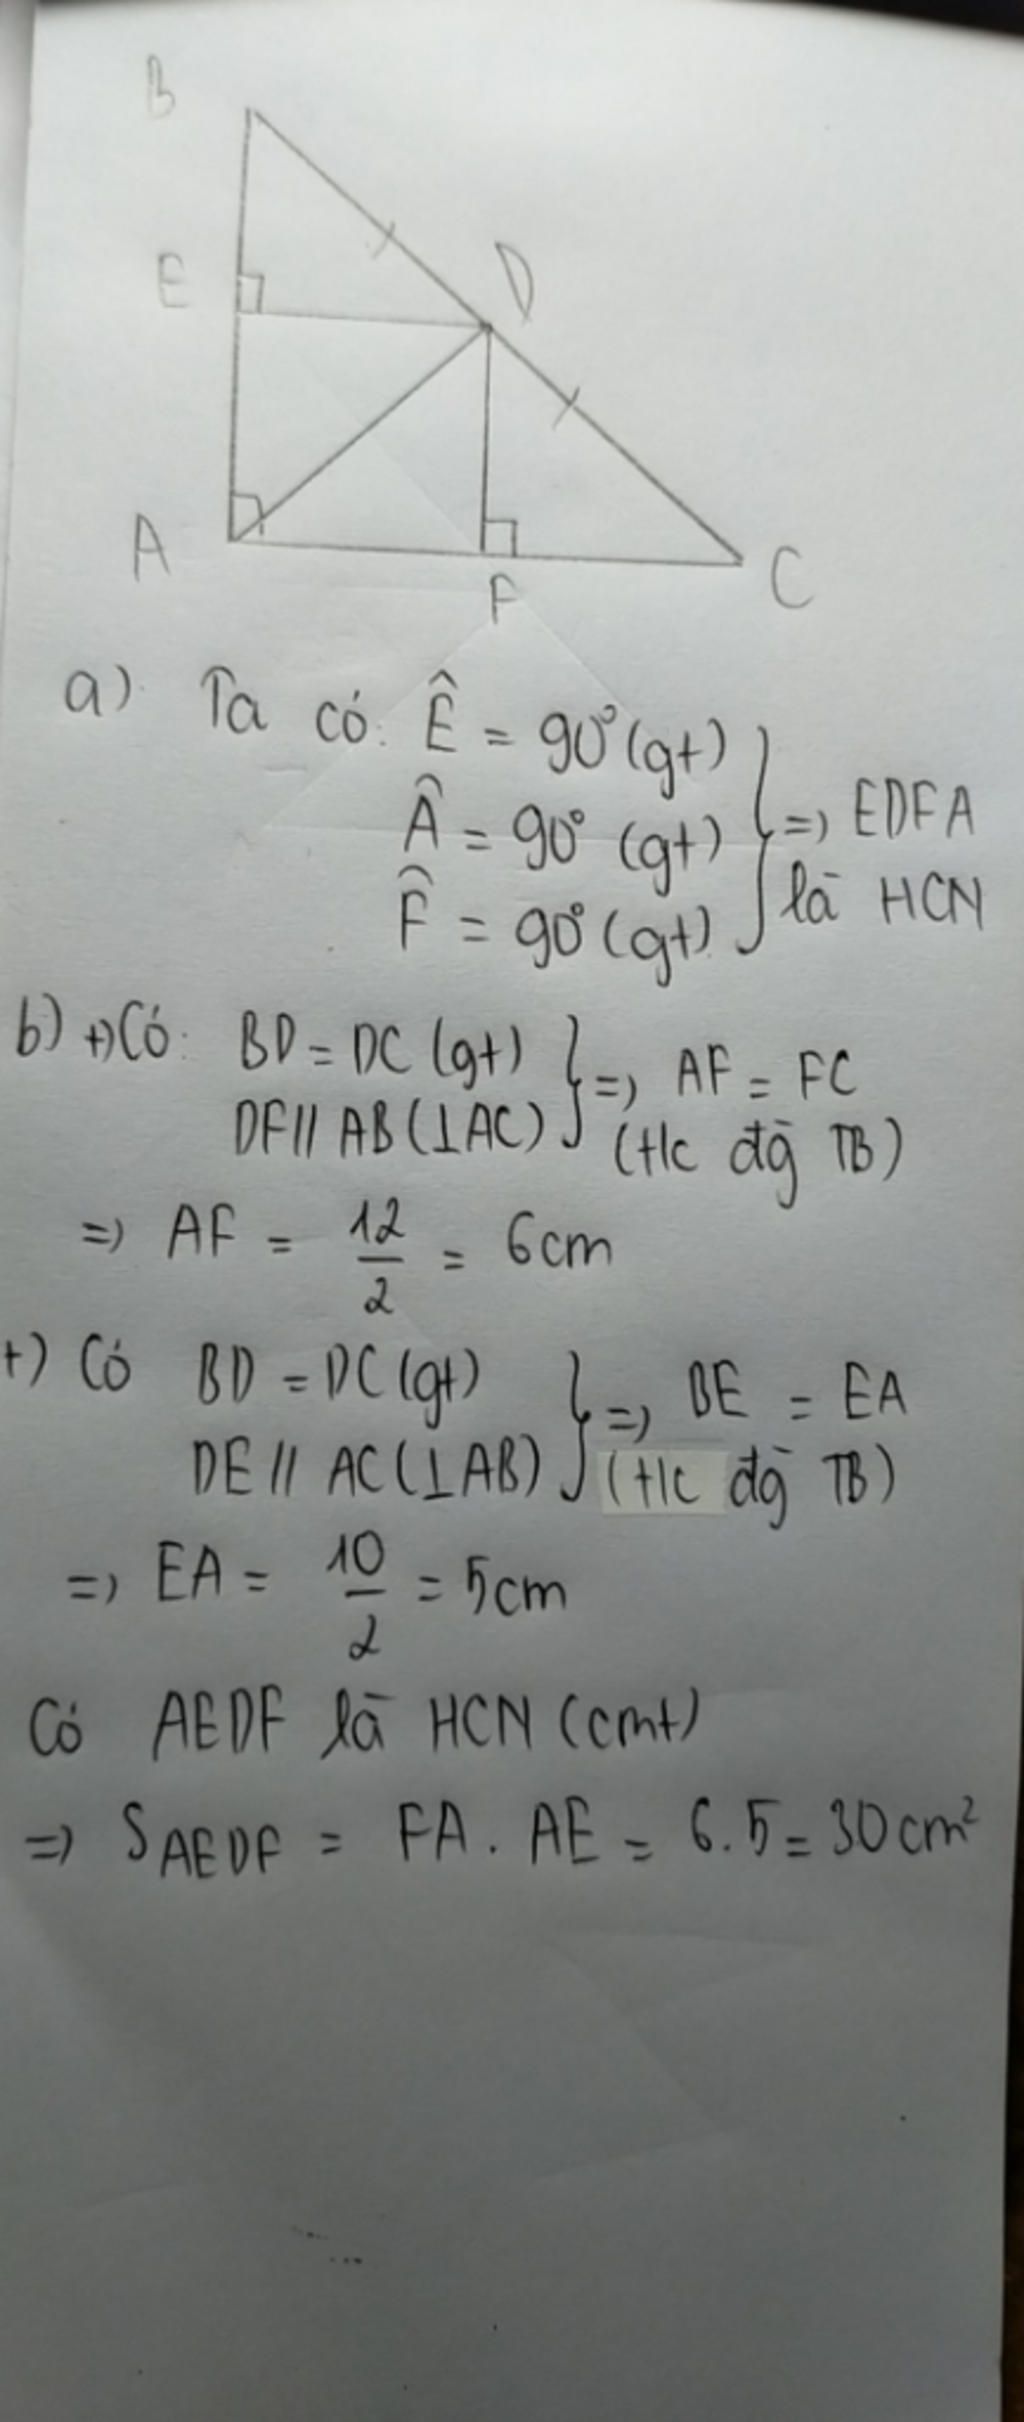 B
E
D
A
F
C
a) Ta có: Ê = 90° (gt)
Â = 90° (gt) } => EDFA
F̂ = 90° (gt) là HCN
b) +) Có: BD = DC (gt) } => AF = FC
DF // AB (⊥AC) (t/c đg TB)
=> AF = 12/2 = 6cm
+) Có BD = DC (gt) } => BE = EA
DE // AC (⊥AB) (t/c đg TB)
=> EA = 10/2 = 5cm
Có AEDF là HCN (cmt)
=> S AEDF = FA . AE = 6.5 = 30 cm²